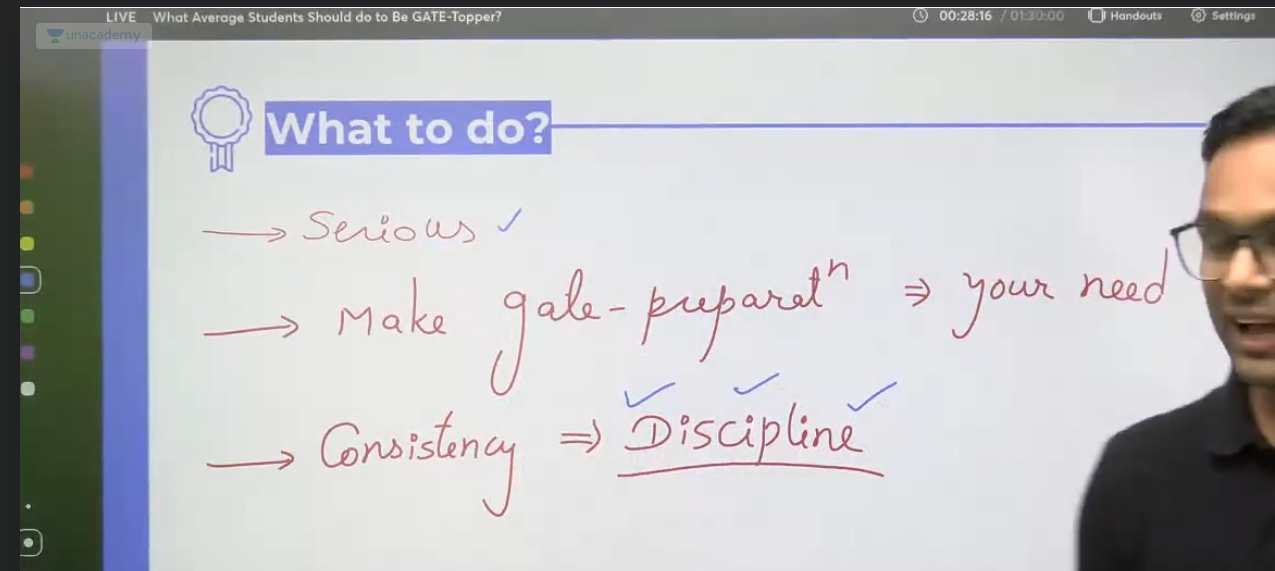 LIVE What Average Students Should do to Be GATE-Topper? 00:28:16 / 01:30:00 Handouts Settings
unacademy
What to do?
→ Serious ✓
→ Make gate-preparatⁿ ⇒ your need
→ Consistency ⇒ Discipline